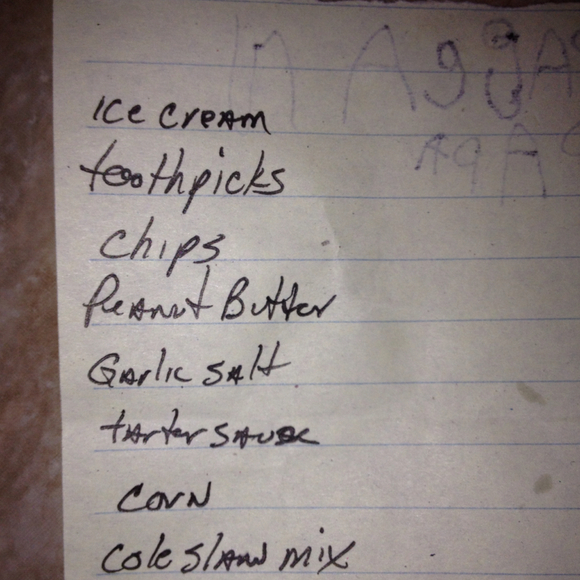 ice cream
toothpicks
chips
Peanut Butter
Garlic salt
tarter sause
corn
cole slaw mix